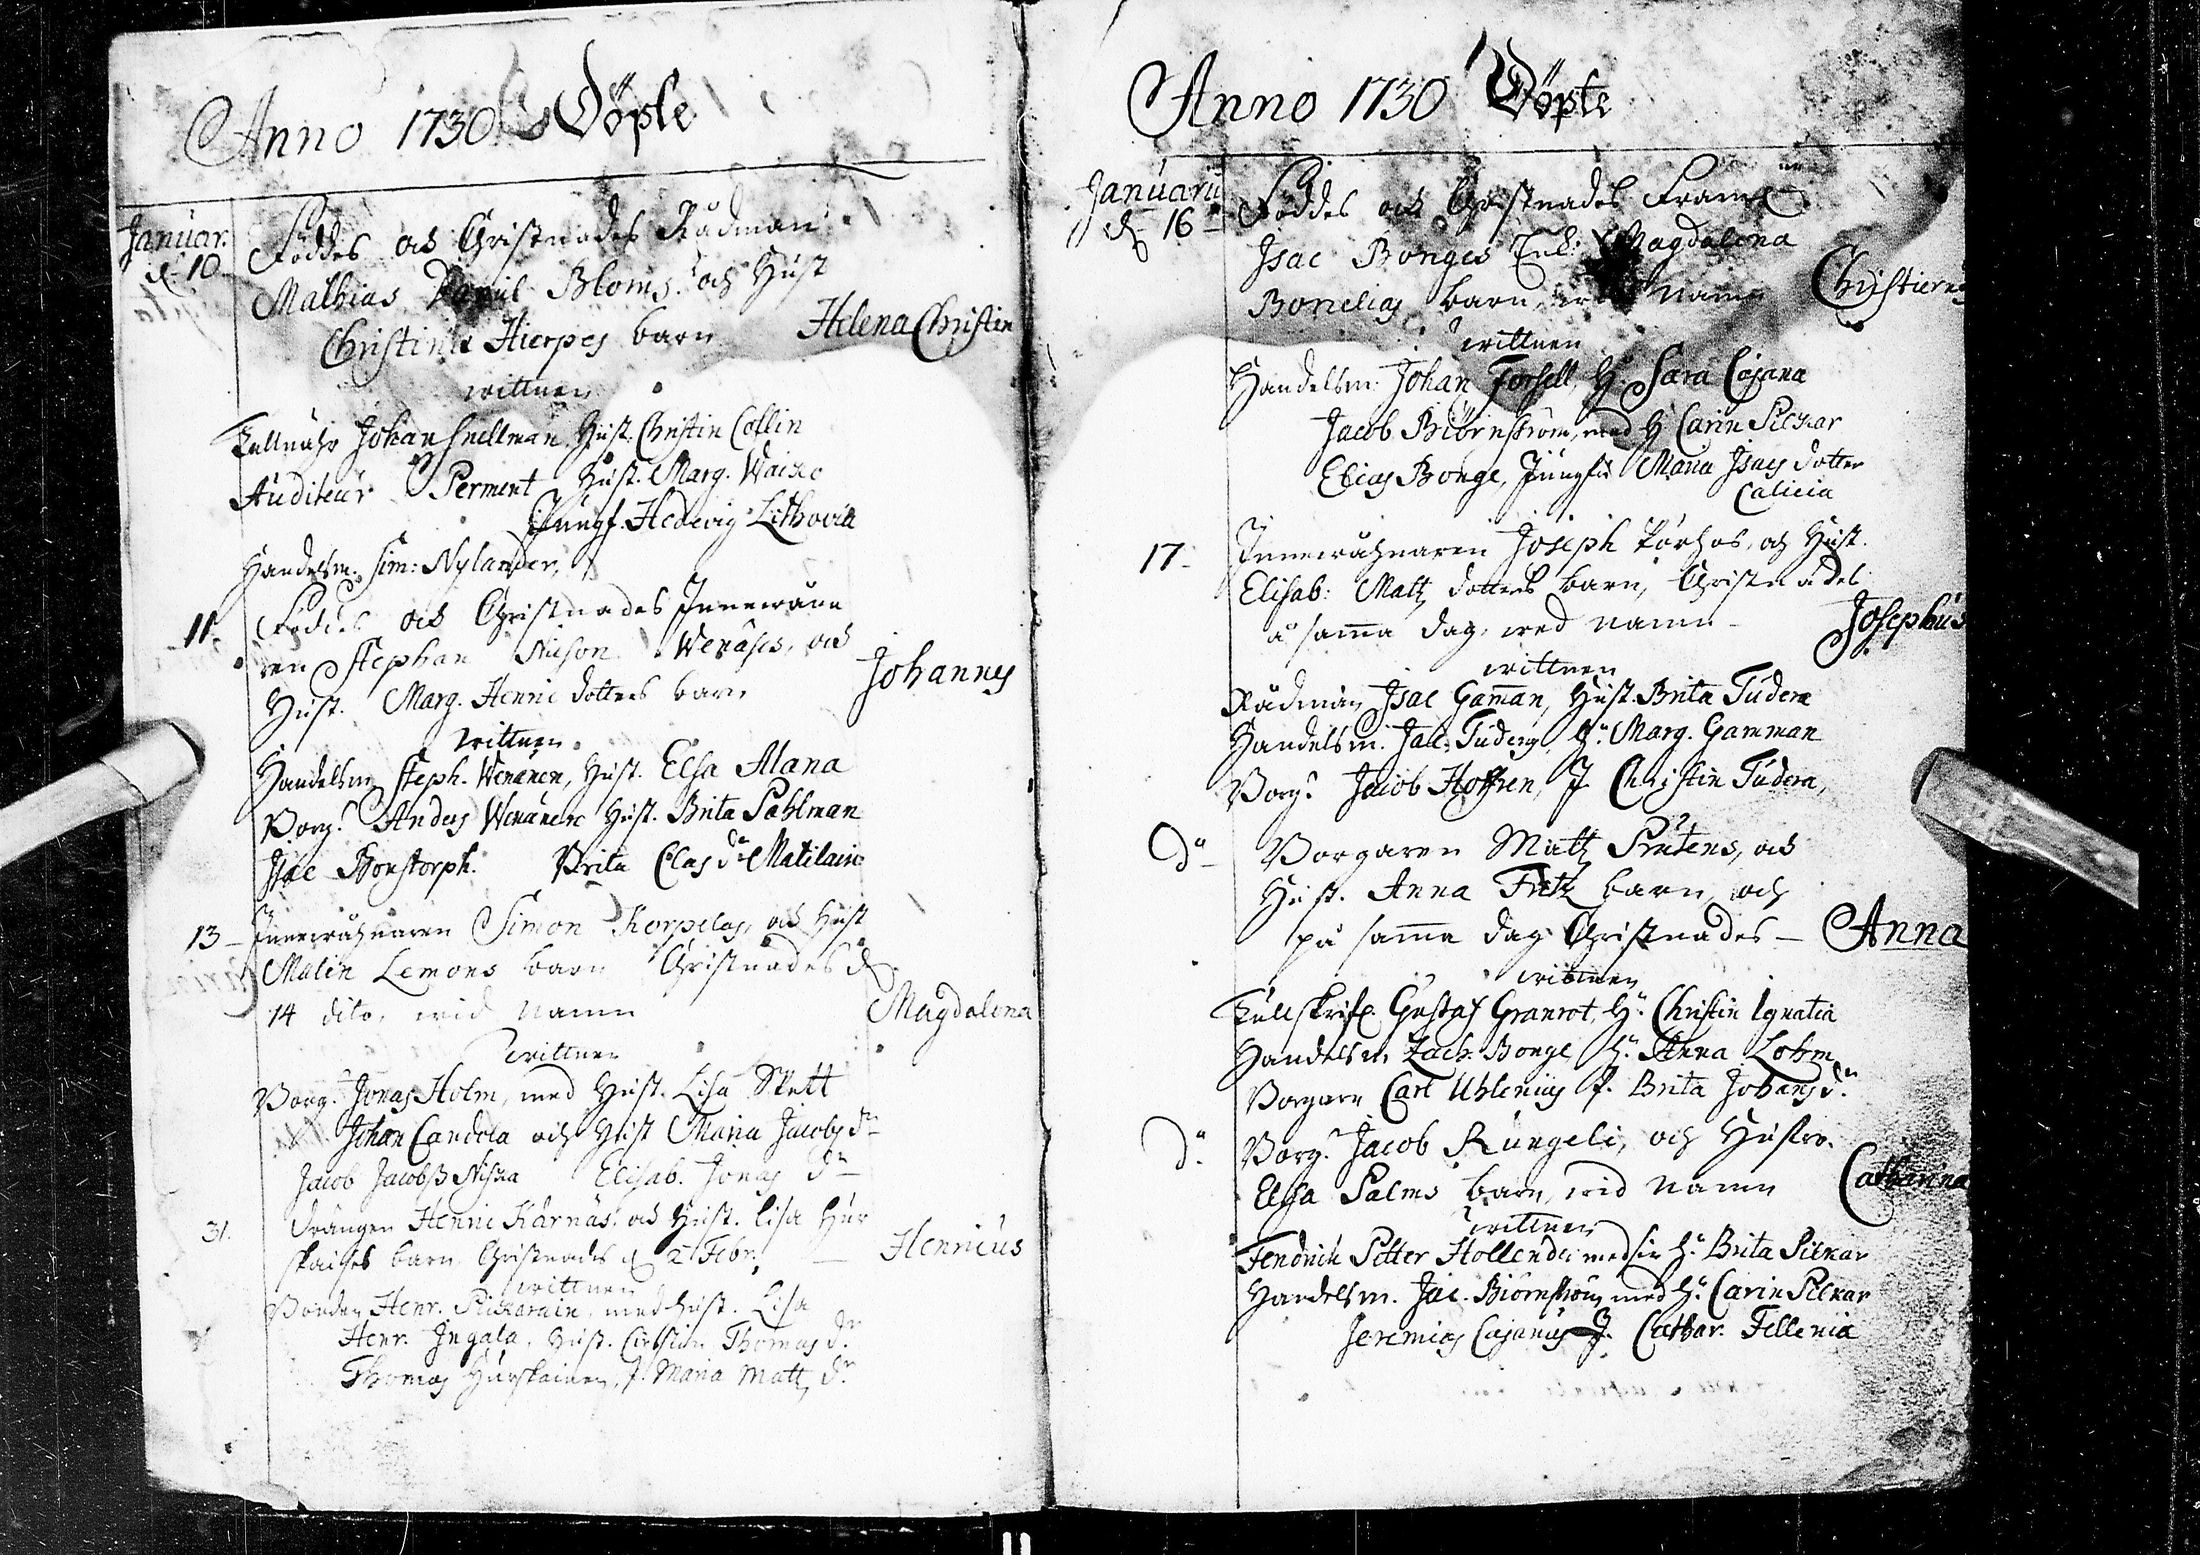 Anno 1730 Döpte
Januar. d. 10 Föddes och Christnades Rådman
Mathias Daniel Bloms och Hust
Christina Hierpes barn Helena Christin
wittnen
Johan Snellman Hust. Christin Collin
Auditeur Perment Hust. Marg. Waiko
Jungf. Hedevig Lithovia
Handelsm. Sim: Nylander,
11. Föddes och Christnades Innewåna
ren Stephan Wenäjes, och
Hust. Marg. Henric dotters barn Johannes
wittnen
Handelsm. Steph. Wenänen, Hust. Elsa Alana
Borg. Anders Wenänen Hust. Brita Pahlman
Isac Bonstorph. Brita Clas dr Matilain
13 - Innewåhnaren Simon Korpelas, och Hust
Malin Lemons barn Christnades d.
14 dito, wid namn Magdalena
wittnen
Borg. Jonas Holm, med Hust. Lisa Skett
Johan Candola och Hust Maria Jacobs dr
Jacob Jacobß Elisab. Jonas dr
31. Drängen Henric Kärnäs och Hust. Lisa Hur
skaises barn Christnades d. 2 Febr. Henricus
wittnen
Bonden Henr. med Hust. Lisa
Henr. Ingala, Hust. Christin Thomas dr.
Thomas Hurskainen, J. Maria Matts dr
Anno 1730 Döpte
Januarii d. 16 - Föddes och Christnades
Isac Bonges Enk: Magdalena
Bonelias barn, namn Christiern
wittnen
Handelsm: Johan Forsell, H. Sara Cajana
Jacob Biörnström, med H Carin Pilkar
Elias Bonge, Jungfr Maria Isacs dotter
Calicia
17 - Innewåhnaren Joseph Pörhös, och Hust.
Elisab: Matts dotters barn, Christnades
å samma dag, med namn - Josephus
wittnen
Rådman Isac Gam̄an, Hust. Brita Tudera
Handelsm. Jac. Tuderus, H. Marg. Gamman
Borg. Jacob Hoffren, J Christin Tudera,
do - Borgaren Matts Prutens, och
Hust. Anna Fritz barn, och
på sam̄a dag Christnades - Anna
wittnen
Tullskrif. Gustaf Granrot, H. Christin Ignatia
Handelsm. Zach. Bonge H. Anna Lohm
Borgaren Carl Uhlenius J. Brita Johans dr.
do. Borg. Jacob Rungeli, och Hustro.
Elsa Palms barn, wid namn Catharina
wittnen
Fendrich Petter Hollender med sin H. Brita Pilkar
Handelsm. Jac. Biörnström med H. Carin Pilkar
Jeremias Cajanus J. Cathar. Fellenia